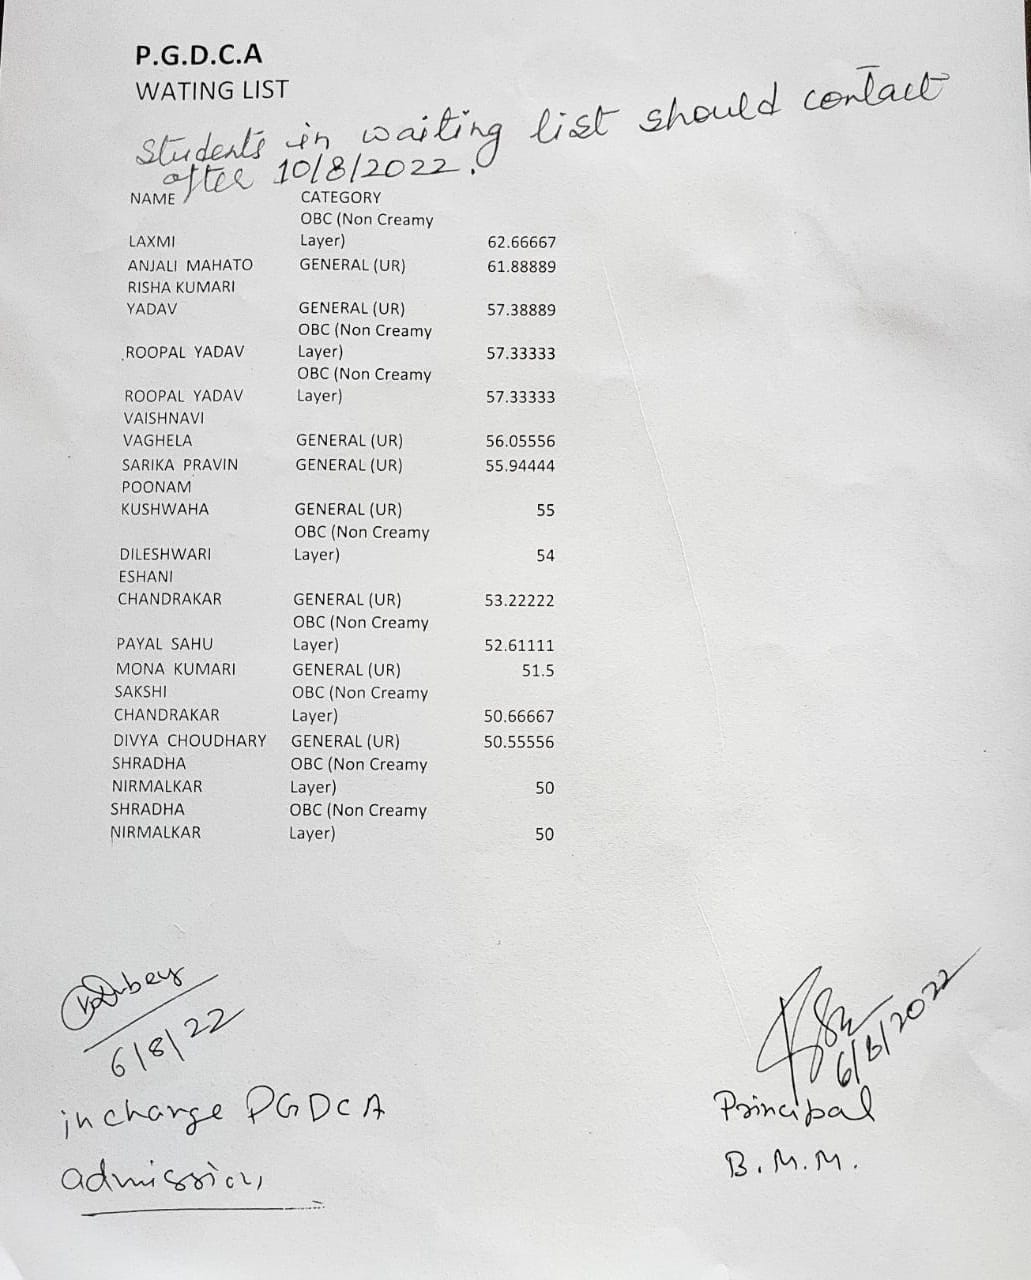 P.G.D.C.A
WATING LIST
Students in waiting list should contact
after 10/8/2022.
NAME CATEGORY
OBC (Non Creamy
LAXMI Layer) 62.66667
ANJALI MAHATO GENERAL (UR) 61.88889
RISHA KUMARI
YADAV GENERAL (UR) 57.38889
OBC (Non Creamy
ROOPAL YADAV Layer) 57.33333
OBC (Non Creamy
ROOPAL YADAV Layer) 57.33333
VAISHNAVI
VAGHELA GENERAL (UR) 56.05556
SARIKA PRAVIN GENERAL (UR) 55.94444
POONAM
KUSHWAHA GENERAL (UR) 55
OBC (Non Creamy
DILESHWARI Layer) 54
ESHANI
CHANDRAKAR GENERAL (UR) 53.22222
OBC (Non Creamy
PAYAL SAHU Layer) 52.61111
MONA KUMARI GENERAL (UR) 51.5
SAKSHI OBC (Non Creamy
CHANDRAKAR Layer) 50.66667
DIVYA CHOUDHARY GENERAL (UR) 50.55556
SHRADHA OBC (Non Creamy
NIRMALKAR Layer) 50
SHRADHA OBC (Non Creamy
NIRMALKAR Layer) 50
6/8/22
incharge PGDCA
admission,
6/8/2022
Principal
B.M.M.